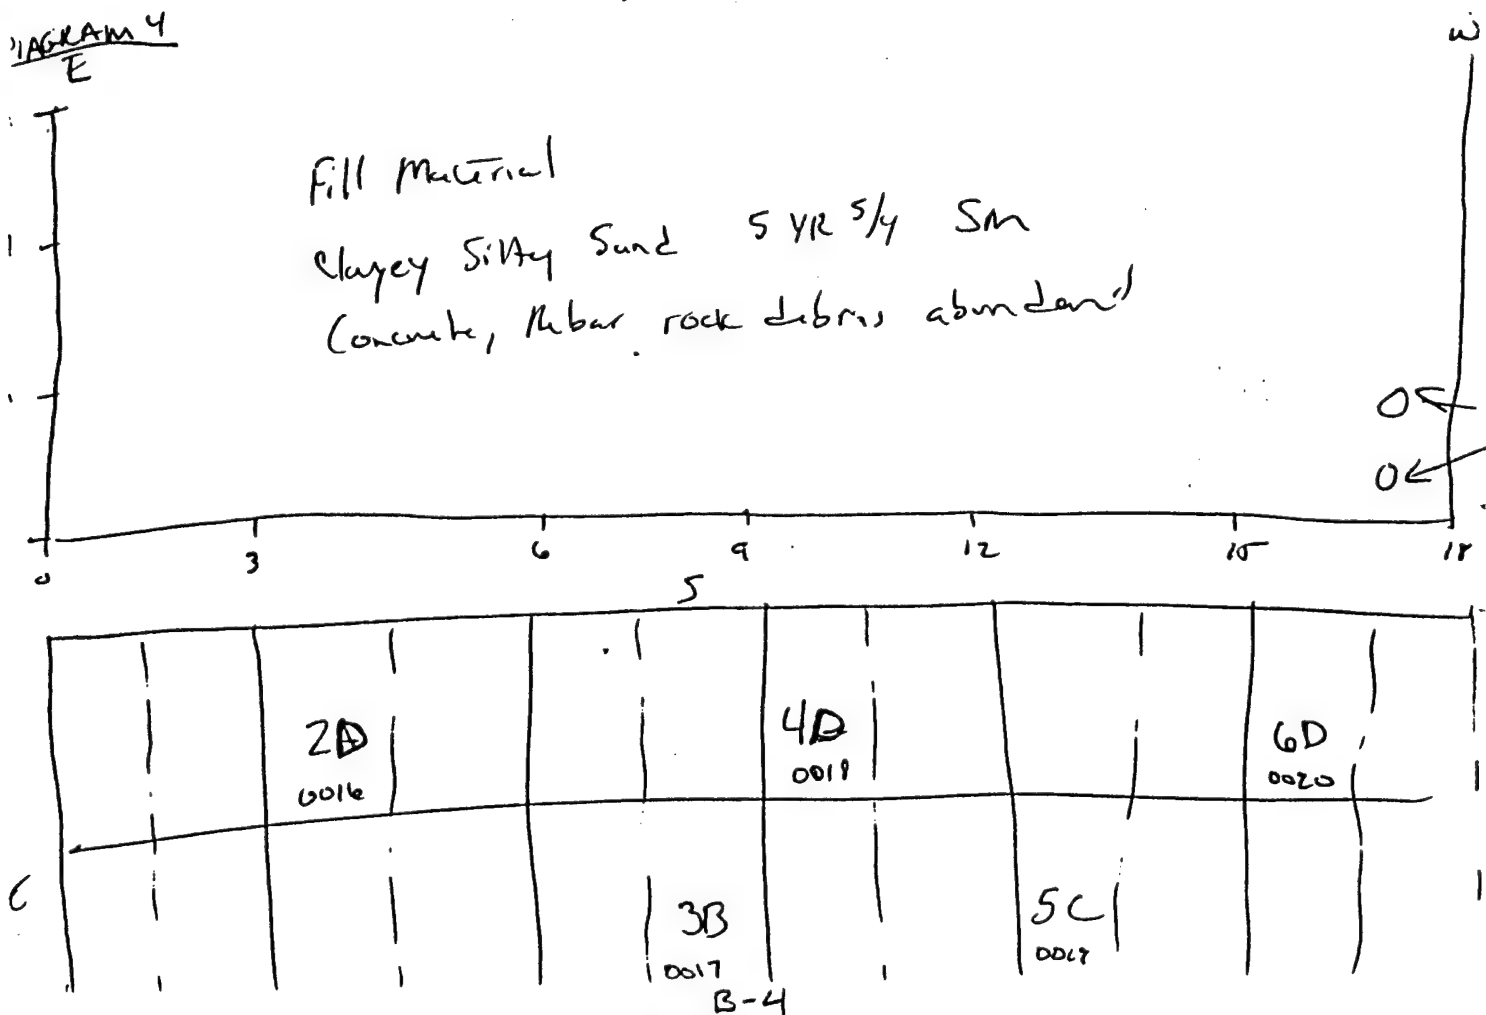 DIAGRAM 4
E
W
Fill Material
Clayey Silty Sand 5 YR 5/4 Sm
Concrete, Rebar rock debris abundant
0 3 6 9 12 15 18
S
2D 4D 6D
0016 0020
3B 5C
0017
B-4